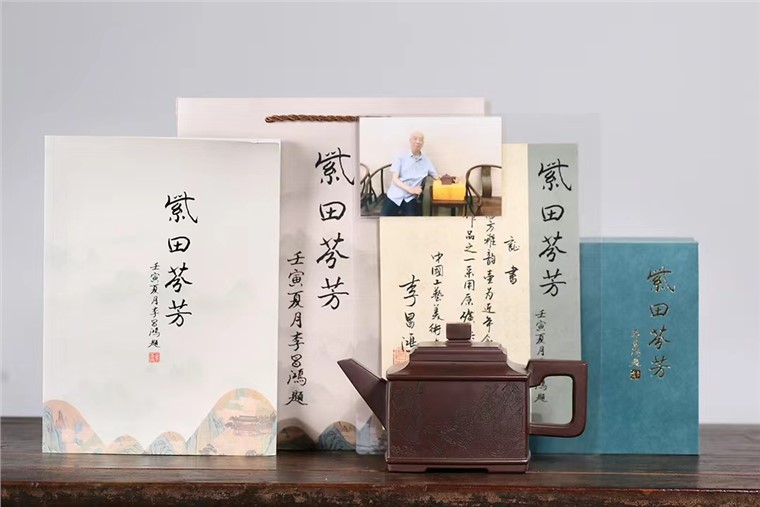 紫田芬芳
壬寅夏月李昌鸿题
紫田芬芳
壬寅夏月李昌鸿题
证书
方雅韵壶为近年
作品之一采用原
中国工艺美术
李昌鸿
紫田芬芳
壬寅夏月李
题
紫田芬芳